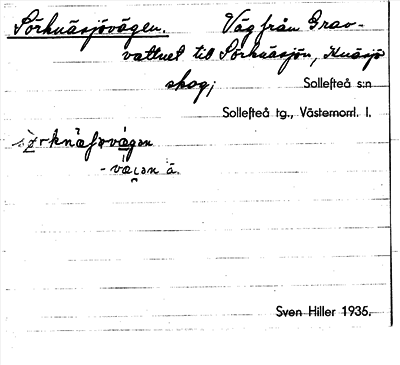 Sörknäsjövägen. Väg från Grav-
vattnet till Sörknäsjön, Knäsjö
skog; Sollefteå s:n
Sollefteå tg., Västernorrl. l.
- vägən ä.
Sven Hiller 1935.